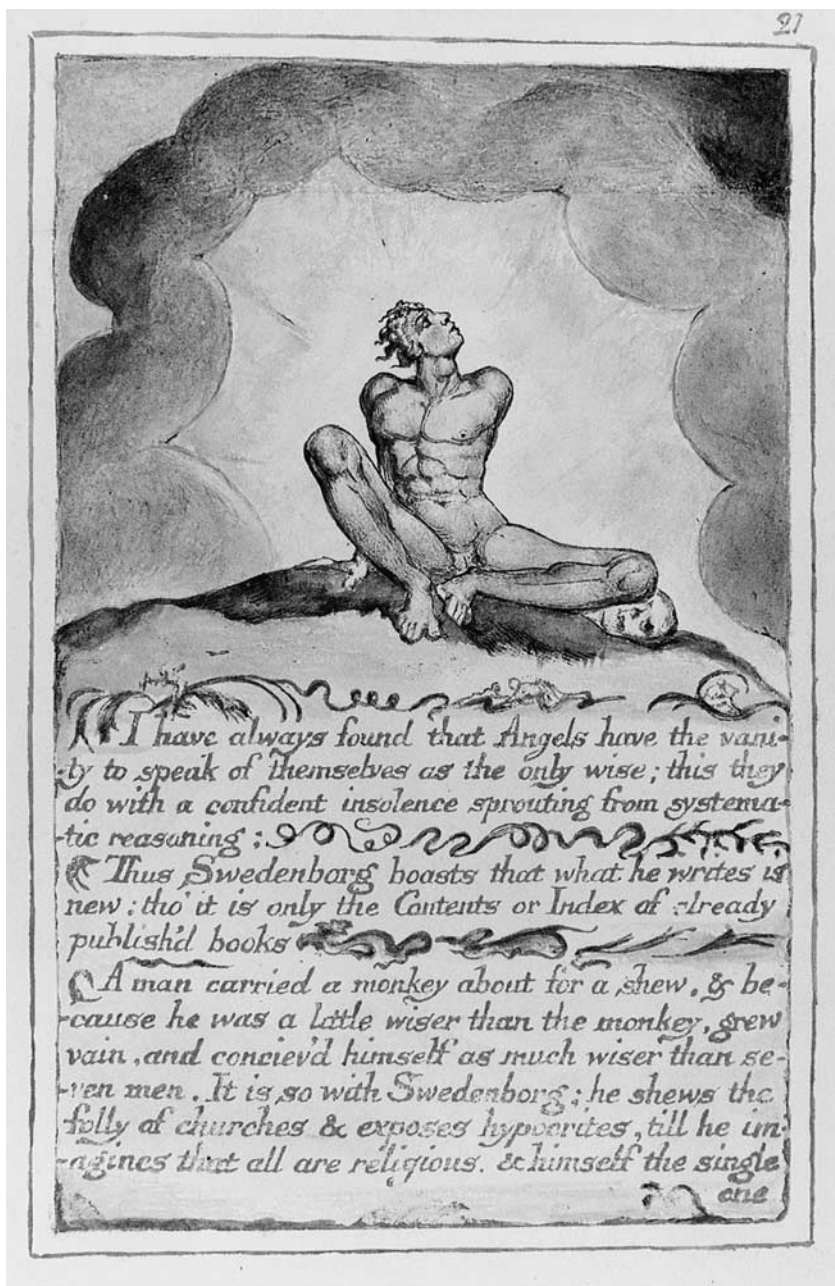 21
I have always found that Angels have the vani-
-ty to speak of themselves as the only wise; this they
do with a confident insolence sprouting from systema-
-tic reasoning:
Thus Swedenborg boasts that what he writes is
new: tho' it is only the Contents or Index of already
publish'd books
A man carried a monkey about for a shew, & be-
-cause he was a little wiser than the monkey, grew
vain, and conciev'd himself as much wiser than se-
-ven men. It is so with Swedenborg; he shews the
folly of churches & exposes hypocrites, till he im-
-agines that all are religious. & himself the single
one